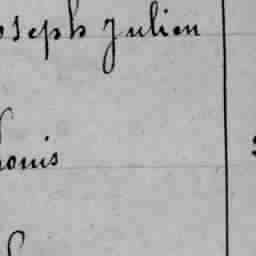 oseph Julien
Louis